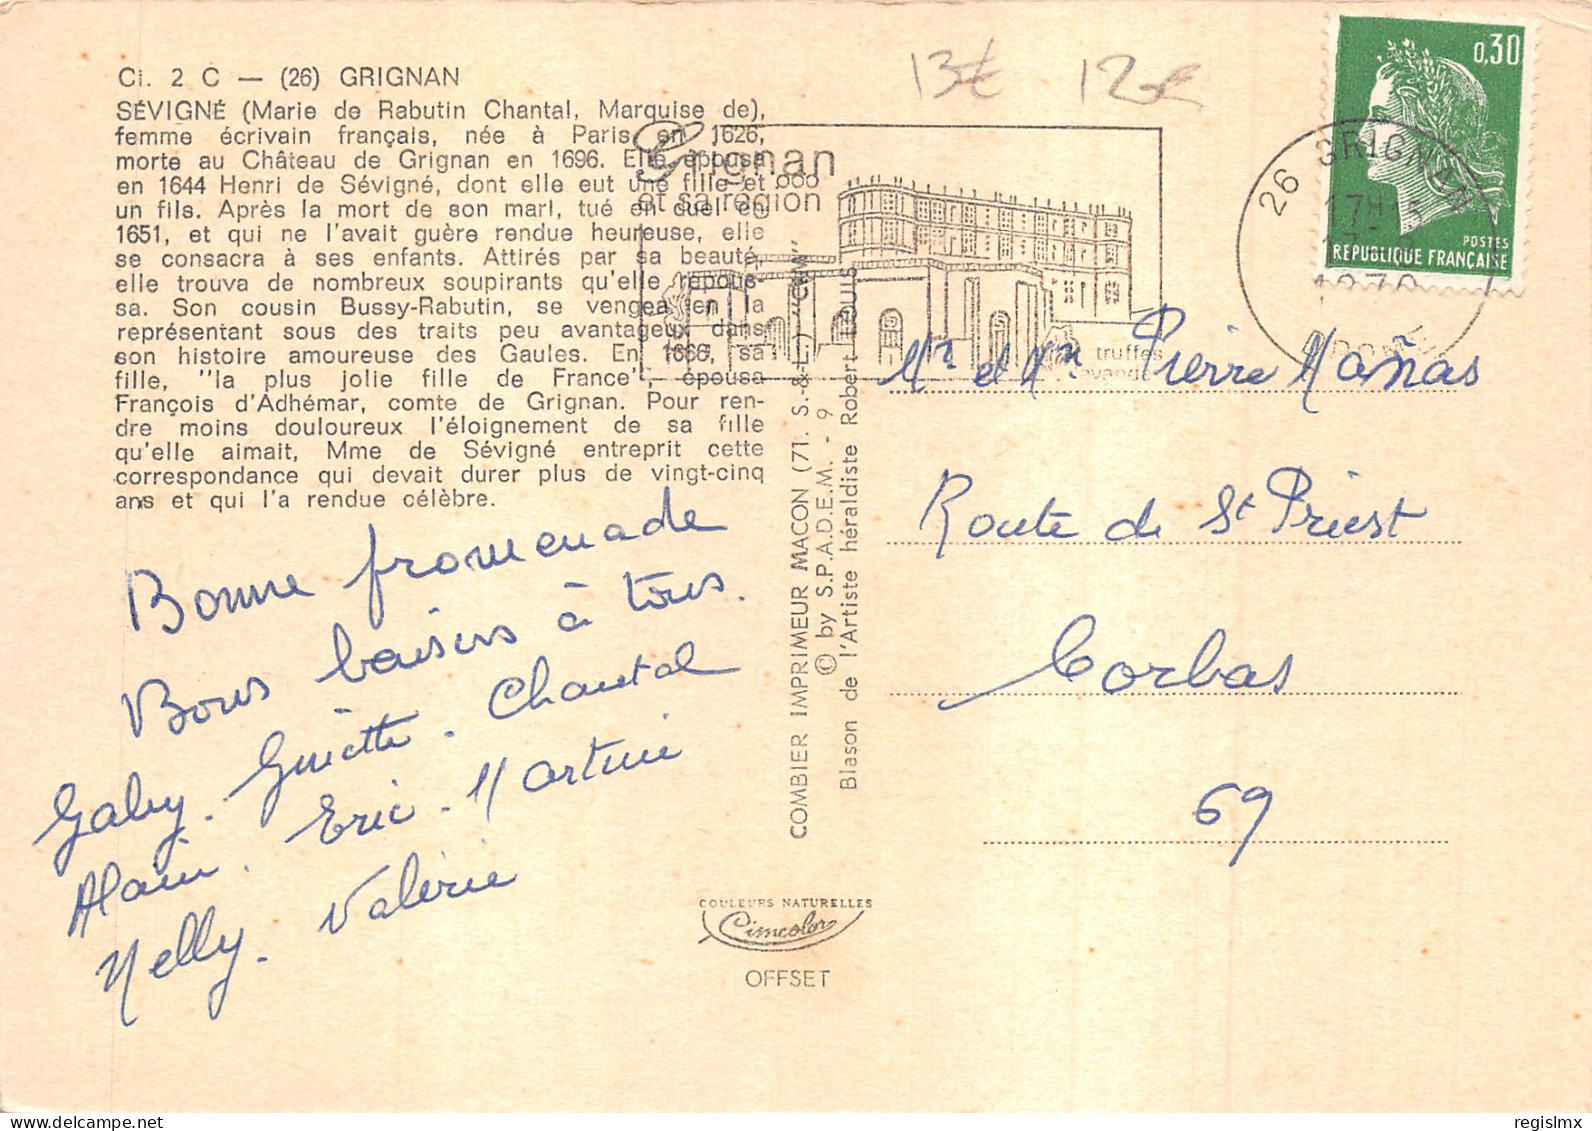 CI. 2 C — (26) GRIGNAN
SÉVIGNÉ (Marie de Rabutin Chantal, Marquise de),
femme écrivain français, née à Paris en 1626,
morte au Château de Grignan en 1696. Elle épousa
en 1644 Henri de Sévigné, dont elle eut une fille et
un fils. Après la mort de son mari, tué en duel en
1651, et qui ne l'avait guère rendue heureuse, elle
se consacra à ses enfants. Attirés par sa beauté,
elle trouva de nombreux soupirants qu'elle repous-
sa. Son cousin Bussy-Rabutin, se vengea en la
représentant sous des traits peu avantageux dans
son histoire amoureuse des Gaules. En 1666, sa
fille, "la plus jolie fille de France", épousa
François d'Adhémar, comte de Grignan. Pour ren-
dre moins douloureux l'éloignement de sa fille
qu'elle aimait, Mme de Sévigné entreprit cette
correspondance qui devait durer plus de vingt-cinq
ans et qui l'a rendue célèbre.
Bonne promenade
Bons baisers à tous.
Gaby. Guiette. Chantal
Alain. Eric. Martine
Nelly. Valérie
COMBIER IMPRIMEUR MACON (71. S.-&-L.) "CIM"
© by S.P.A.D.E.M. - 9
Blason de l'Artiste héraldiste Robert LOUIS
COULEURS NATURELLES
Cimcolor
OFFSET
13€ 12€
Grignan
et sa région
truffes
0,30
POSTES
REPUBLIQUE FRANÇAISE
26 GRIGNAN
17H15
1970
DROME
Mr et Mme Pierre Mañas
Route de St Priest
Corbas
69
regislmx